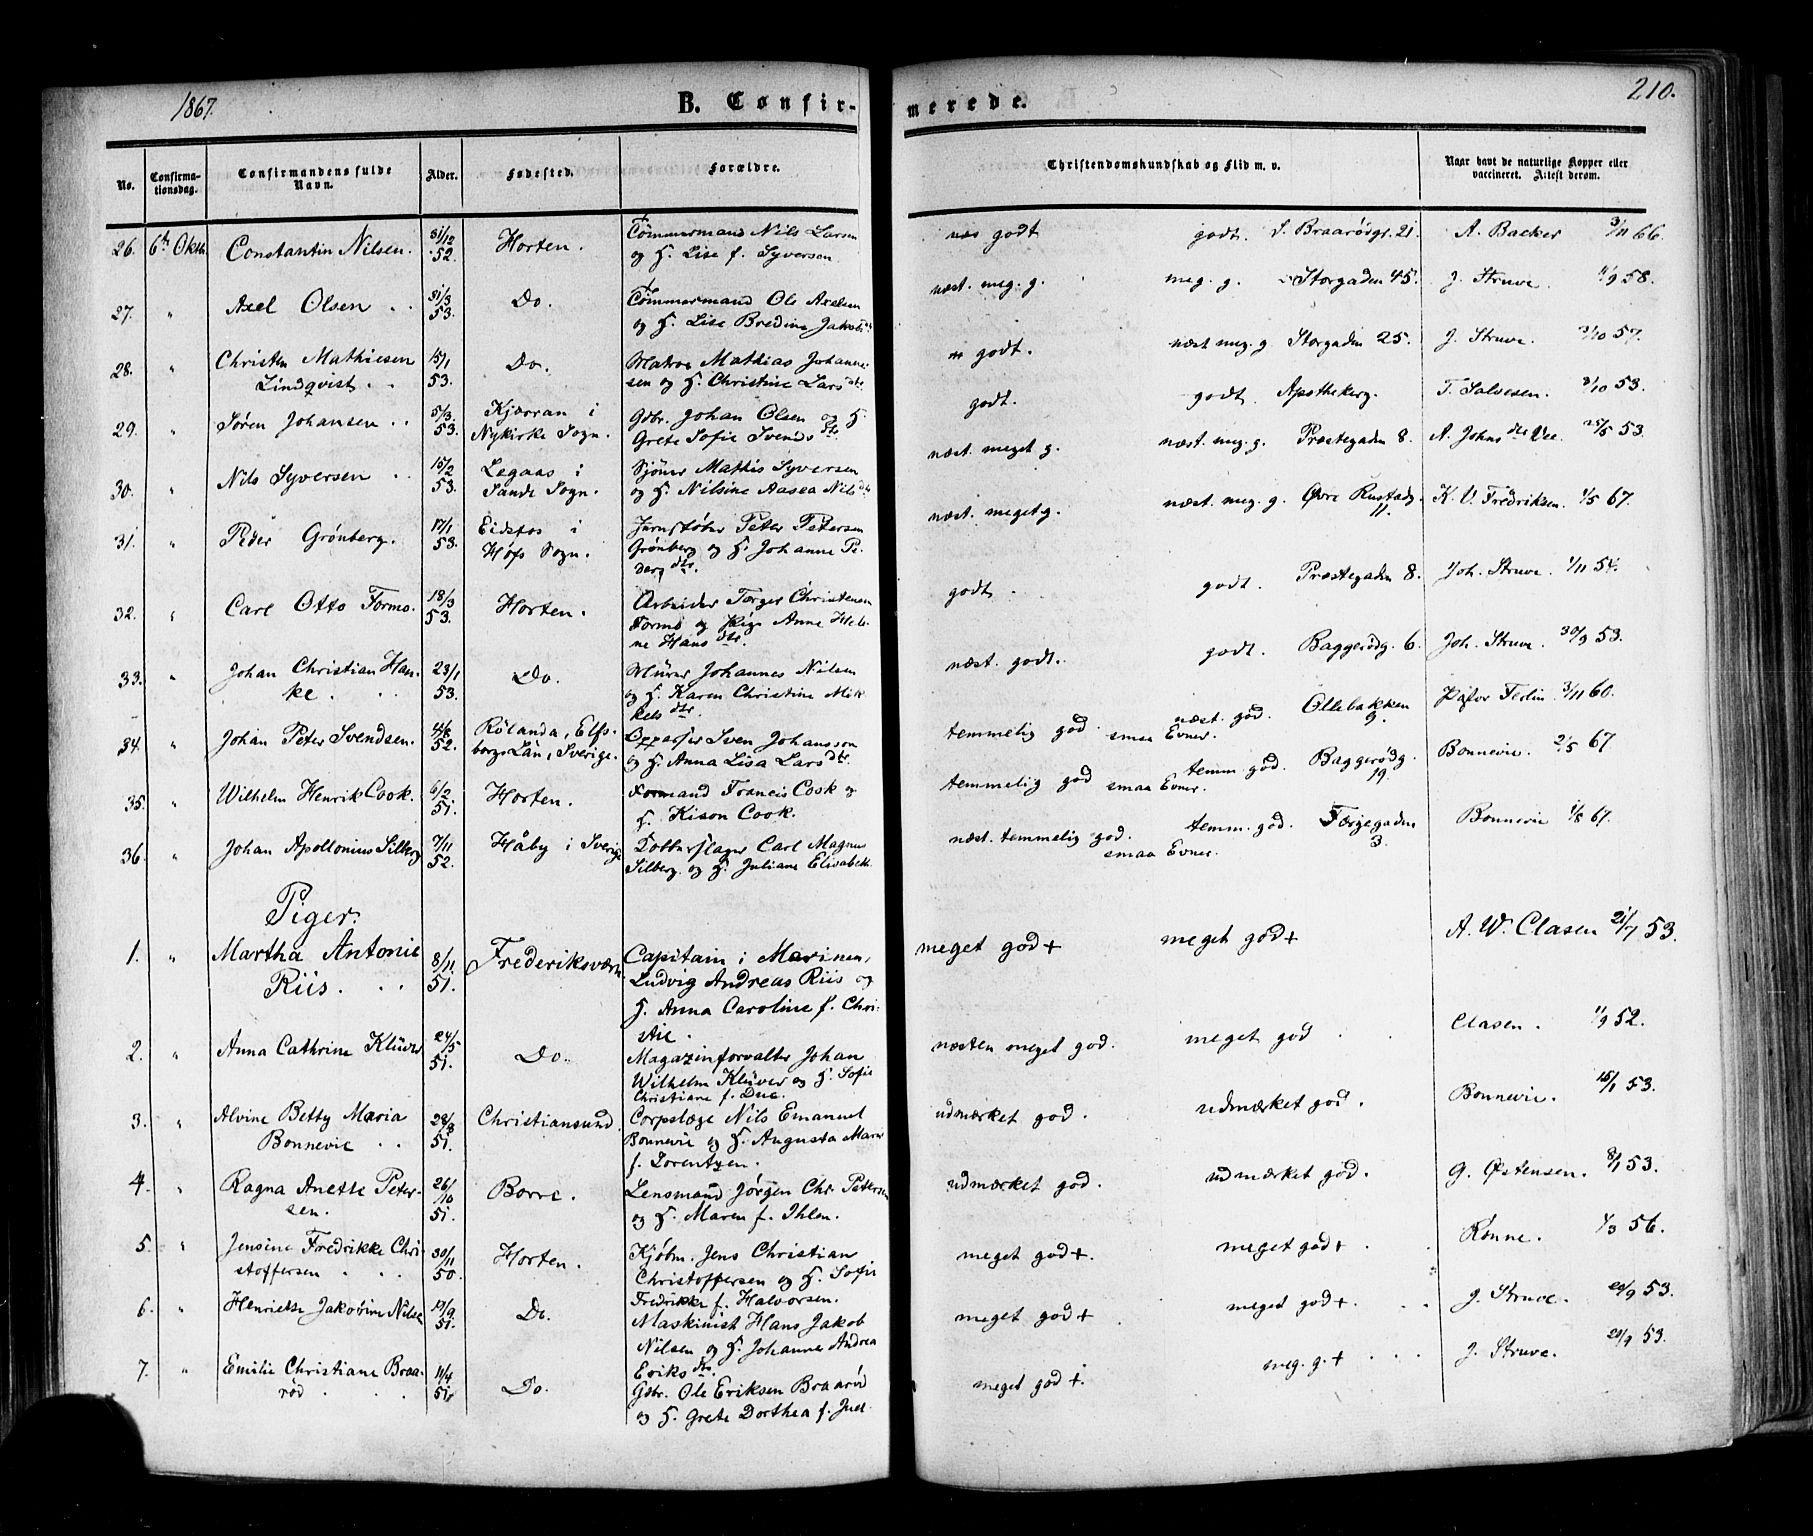 1867.
B. Confir-
merede.
210.
No.
Confirma-
tionsdag.
Confirmandens fulde
Navn.
Alder.
Fødested.
Forældre.
Christendomskundskab og Flid m. v.
Naar havt de naturlige Kopper eller
vaccineret. Attest derom.
26. 6te Oktb. Constantin Nilsen. 31/12 52. Horten. Tømmermand Nils Larsen
og H. Lise f. Syversen
godt godt. Braarødgr. 21. A. Backer 3/11 66.
27. " Axel Olsen 31/3 53. Do. Tømmermand Ole Axelsen
og H. Lise Bredine Jakobsdtr
næst. meg. g. meg. g. Storgaden 45. J. Struve. 11/9 58.
28. " Christen Mathiesen 15/1 53. Do. Matros Mathias Johanne-
Lindqvist. sen og H. Christine Larsdtr
godt. næst meg. g. Storgaden 25. J. Struve. 3/10 57.
29. " Søren Johansen 5/3 53. Kjærran i Gdbr. Johan Olsen og H.
Nykirke Sogn. Grete Sofie Svendsdtr
godt. godt. Apothekerg. T. Salvesen. 3/10 53.
30. " Nils Syversen 15/2 53. Legaas i Sjømr Mathis Syversen
Sande Sogn. og H. Nilsine Aasea Nilsdtr
næst. meget g. næst meg. g. Præstegaden 8. A. Johnsdtr Vee. 25/5 53.
31. " Peder Grønberg. 17/1 53. Eidsfos i Jernstøber Peter Petersen
Hofs Sogn. Grønberg og H. Johanne Pe-
dersdtr.
næst. meget g. næst meg. g. Øvre Rustadg. 11. K. V. Fredriksen. 1/5 67.
32. " Carl Otto Formo. 18/3 53. Horten. Arbeider Torger Christensen
Formo og Pige Anne Hele-
ne Hansdtr.
godt. godt. Præstegaden 8. Joh. Struve. 1/11 54.
33. " Johan Christian Han- 23/1 53. Do. Murer Johannes Nilsen
ke. og H. Karen Christine Mik-
kelsdtr.
næst. godt. godt. Baggerødg. 6. Joh. Struve. 30/9 53.
34. " Johan Peter Svendsen. 52. Rölanda, Elfs- Sven Johansson
borgs Län, Sverige. og H. Anna Lisa Larsdtr.
temmelig god smaa Evner. næst. god. Ollebakken 9. 3/11 60.
35. " Wilhelm Henrik Cook. 6/2 51. Horten. Formand Francis Cook og
H. Kison Cook.
temmelig god smaa Evner. temm. god. Baggerødg. 19. Bonnevie. 2/5 67.
36. " Johan Apollonius Silberg 7/11 52. Håby i Sverige Carl Magnus
Silberg og H. Juliane Elisabeth
næst. temmelig god. smaa Evner. temm. god. Færgegaden 3. Bonnevie 1/8 67.
Piger.
1. " Martha Antonie 8/11 51. Frederiksværn. Capitain i Marinen,
Riis. Ludvig Andreas Riis og
H. Anna Caroline f. Chri-
stie.
meget god + meget god + A. W. Clasen 21/7 53.
2. " Anna Cathrine Klüver 24/5 51. Do. Magazinforvalter Johan
Wilhelm Klüver og H. Sofie
Christiane f. Due.
næsten meget god. meget god Clasen. 11/9 52.
3. " Alvine Betty Maria 28/8 51. Christiansund. Corpslæge Nils Emanuel
Bonnevie Bonnevie og H. Augusta Marie
f. Lorentzen.
udmærket god. udmærket god. Bonnevie. 15/1 53.
4. " Ragna Anette Peter- 26/10 51. Borre. Lensmand Jørgen Chr. Petersen
sen. og H. Maren f. Ihlen.
udmærket god. udmærket god. G. Østensen. 8/1 53.
5. " Jensine Fredrikke Chri- 30/11 50. Horten. Kjøbm. Jens Christian
stoffersen Christoffersen og H. Sofie
Fredrikke f. Halvorsen.
meget god +. meget god + Rønne. 1/3 56.
6. " Henriette Jakobine Nilsen 17/9 51. Do. Maskinist Hans Jakob
Nilsen og H. Johanne Andrea
Eriksdtr.
meget god + meget god +. J. Struve. 20/9 53.
7. " Emilie Christiane Braa- 11/4 51. Do. Gdbr. Ole Eriksen Braarød
rød og H. Grete Dorthea f. Juel.
meget god +. meg. g. + J. Struve. 20/9 53.